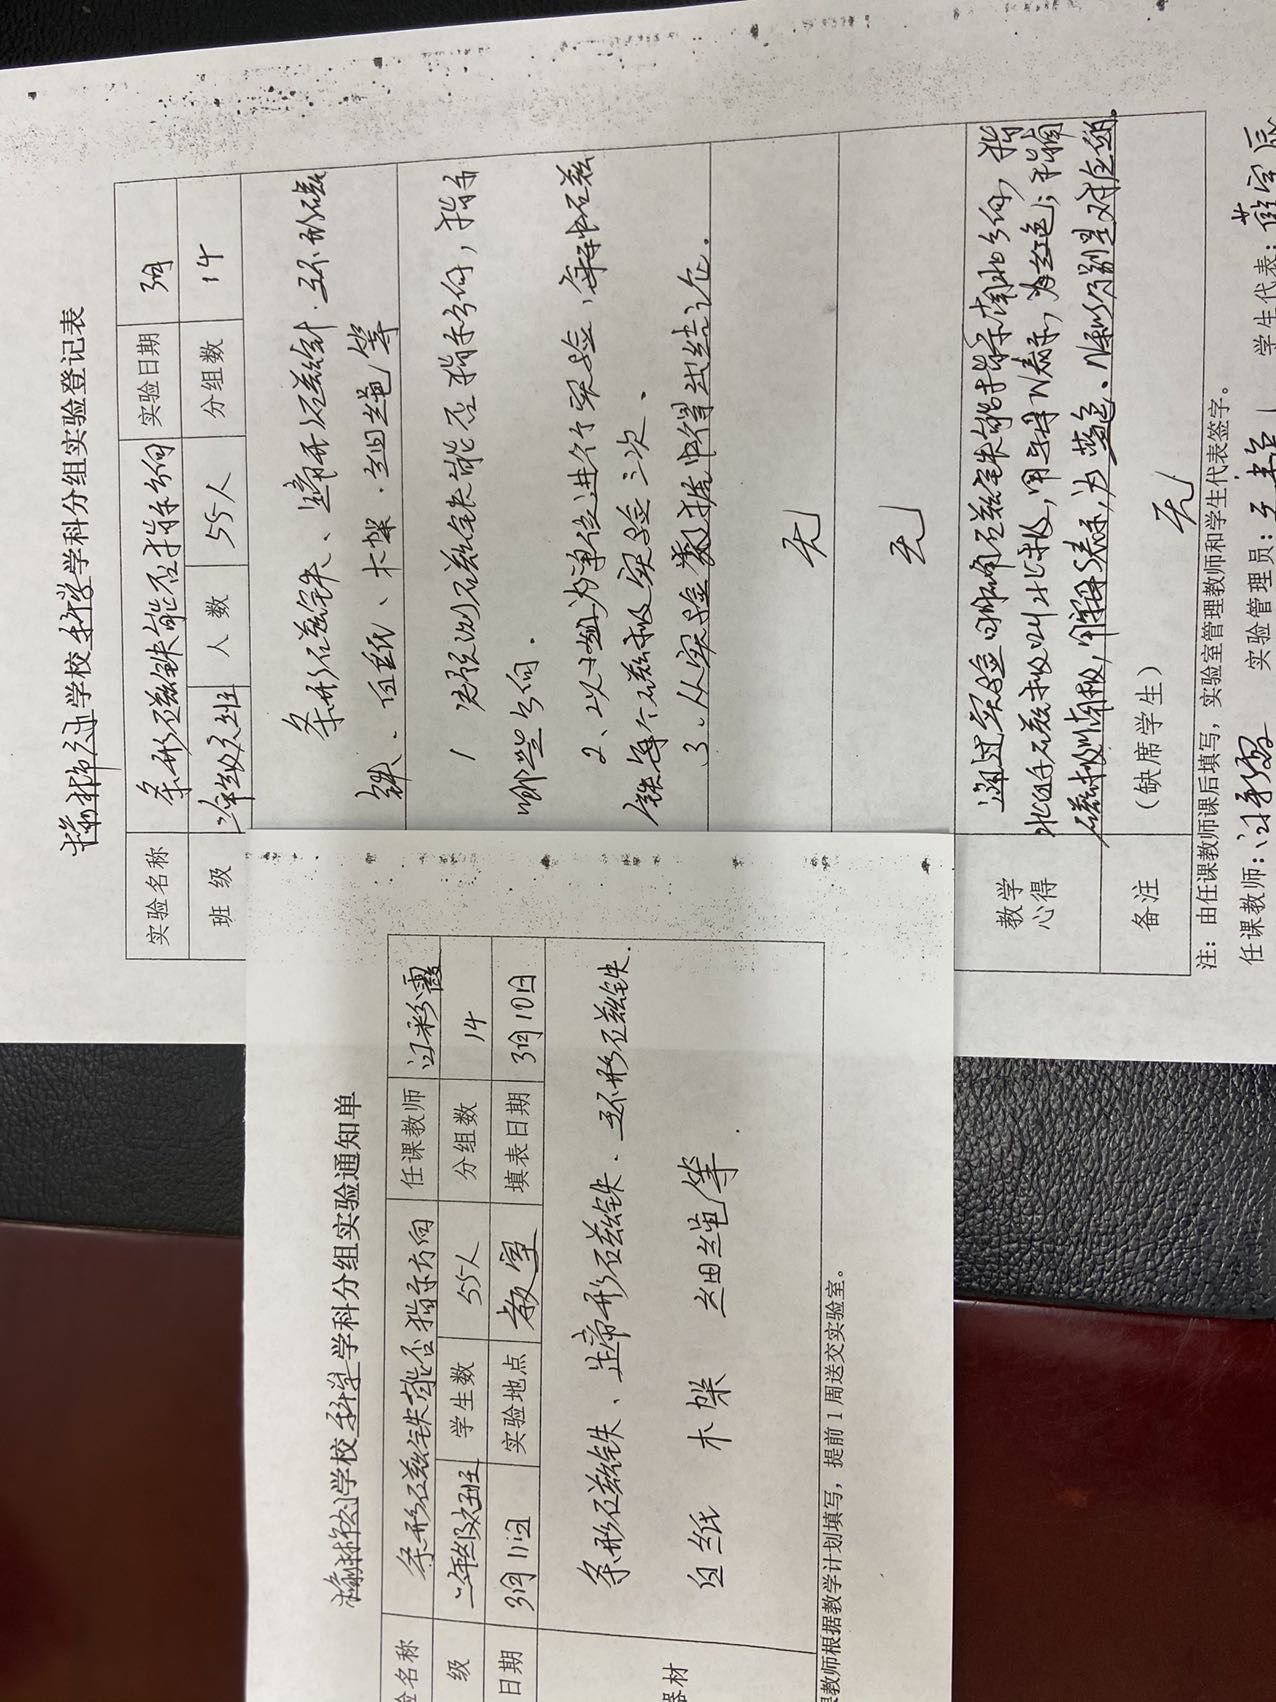 学校科学学科分组实验登记表
实验名称 条形磁铁能否指示方向 实验日期 3月
班 级 二年级 班 人 数 55人 分组数 14
条形磁铁、蹄形磁铁、环形磁
铁、白纸、木架、细绳等
1 先预测磁铁能否指示方向，指示
哪些方向.
2、以小组为单位进行实验，每种磁
铁每个磁极实验三次.
3、从实验数据中得出结论.
无
无
教学
心得
通过实验 磁铁能指示南北方向，指
北的磁极叫北极，用字母N表示，为红色；指南
磁极叫南极，用 S表示，为蓝色、
备注
（缺席学生） 无
注：由任课教师课后填写，实验室管理教师和学生代表签字。
任课教师： 实验管理员： 学生代表：
学校科学学科分组实验通知单
验名称 条形磁铁能否指示方向 任课教师 彩霞
级 二年级 班 学生数 55人 分组数 14
日期 3月11日 实验地点 教室 填表日期 3月10日
器材
条形磁铁、蹄形磁铁、环形磁铁.
白纸 木架 细绳等
教师根据教学计划填写，提前1周送交实验室。